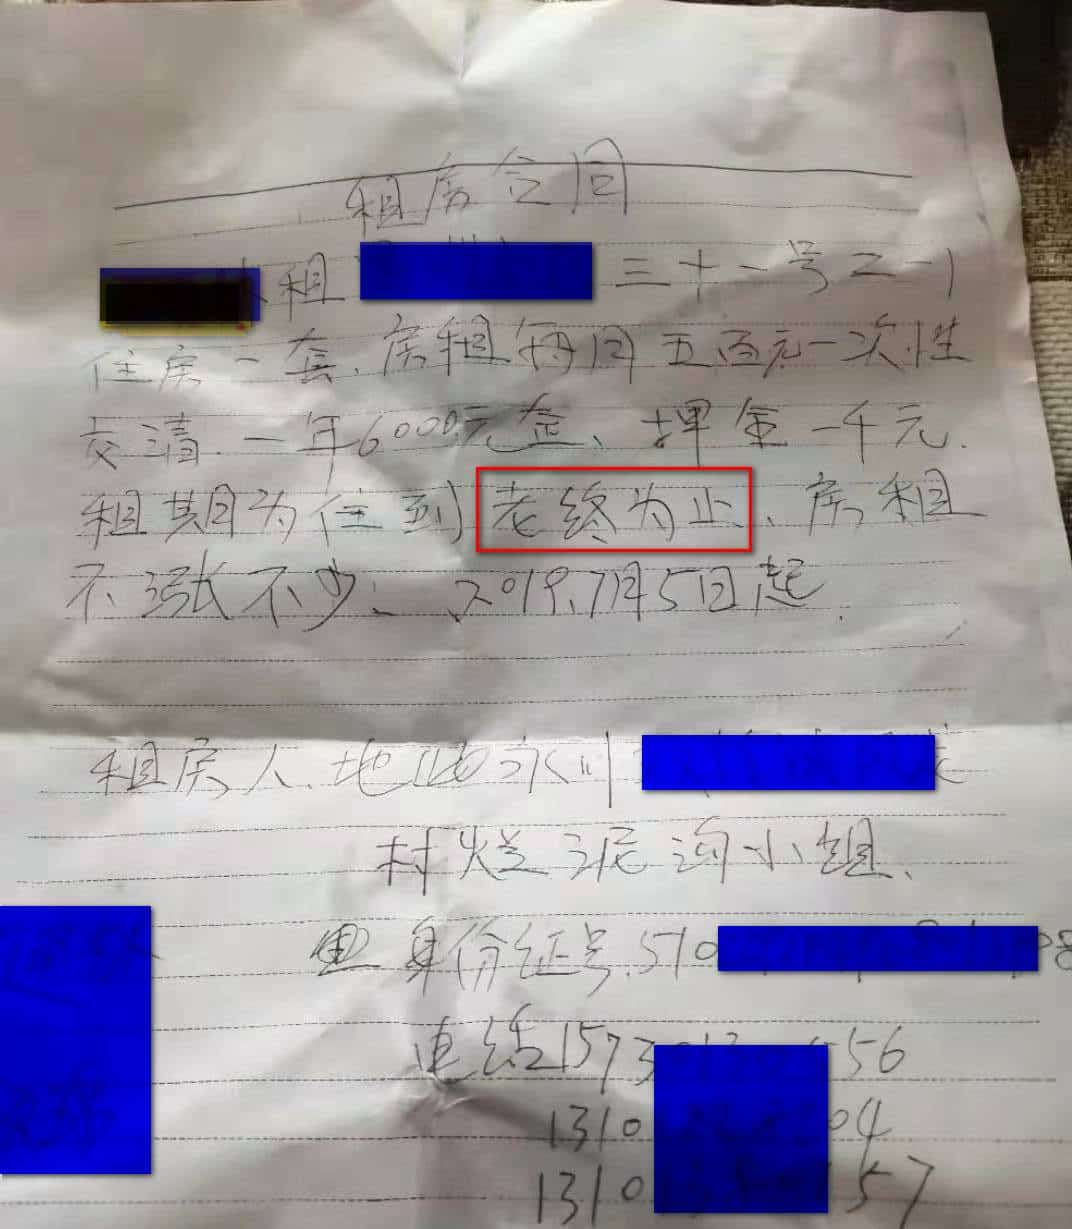 租房合同
租 三十一号2-1
住房一套、房租每月五百元一次性
交清.一年6000元金、押金一千元.
租期为住到老终为止、房租
不涨不少、2019.7月5日起.
租房人.地址永川
村烂泥沟小组.
身份证号.510 8
电话1573 56
1310 04
1310 57